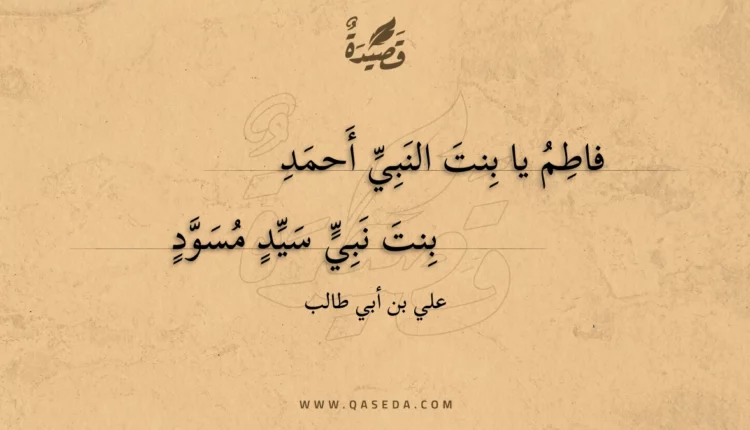 قَصِيْدَةٌ
فاطِمُ يا بِنتَ النَبِيِّ أَحمَدِ
بِنتَ نَبِيٍّ سَيِّدٍ مُسَوَّدٍ
علي بن أبي طالب
WWW.QASEDA.COM